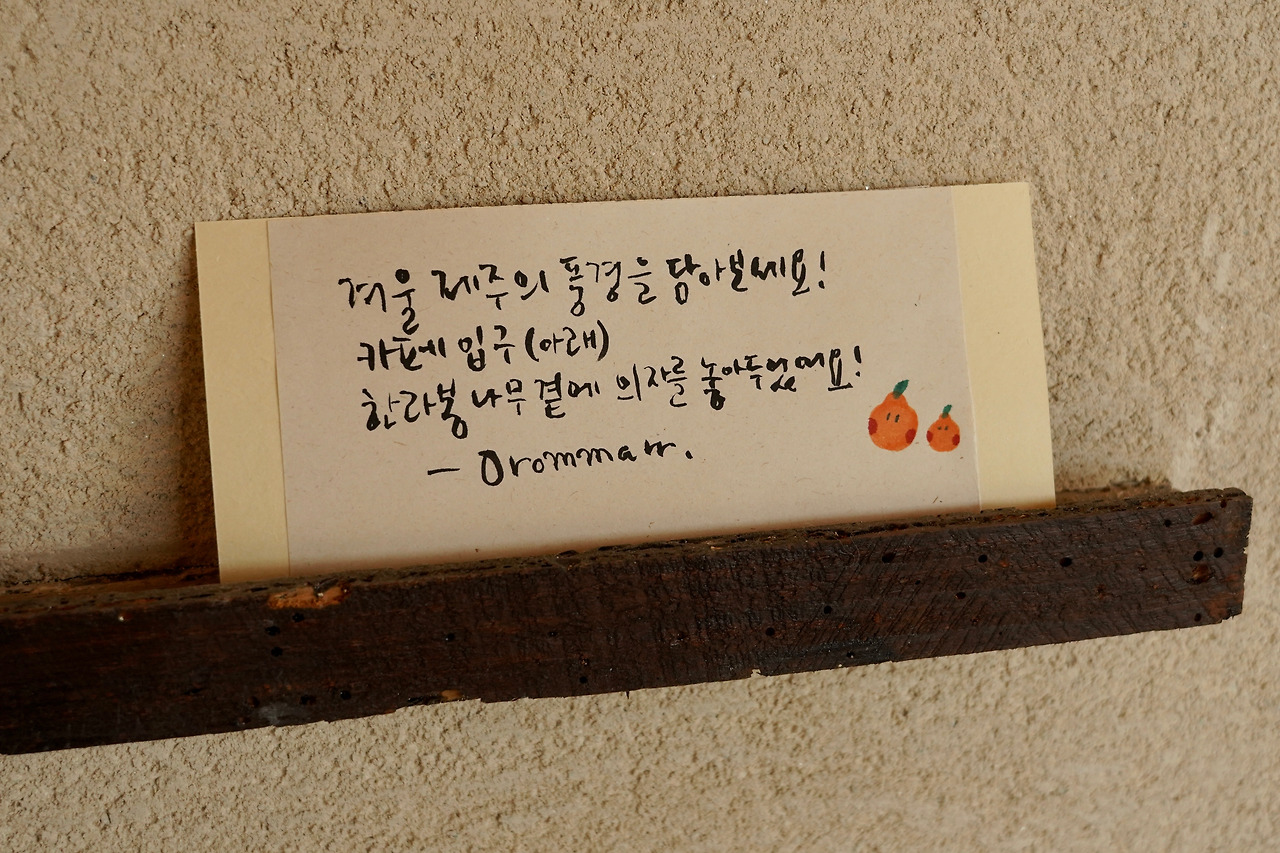 겨울 제주의 풍경을 담아보세요!
카페 입구 (아래)
한라봉 나무 곁에 의자를 놓아두었어요!
— Orommarr.